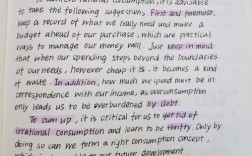 to achieve rational consumption, it is advisable
to take the following suggestions. First and foremost,
keep a record of what we really need and make a
budget ahead of our purchase, which are practical
ways to manage our money well. Just keep in mind
that when our spending steps beyond the boundaries
of our needs, however cheap it is. it becomes a kind
of waste. In addition, how much we spend must be in
correspondence with our income, as overconsumption
only leads us to be overburdened by debt.
To sum up, it is critical for us to get rid of
irrational consumption and learn to be thrifty. Only by
doing so can we form a right consumption concept,
our future development